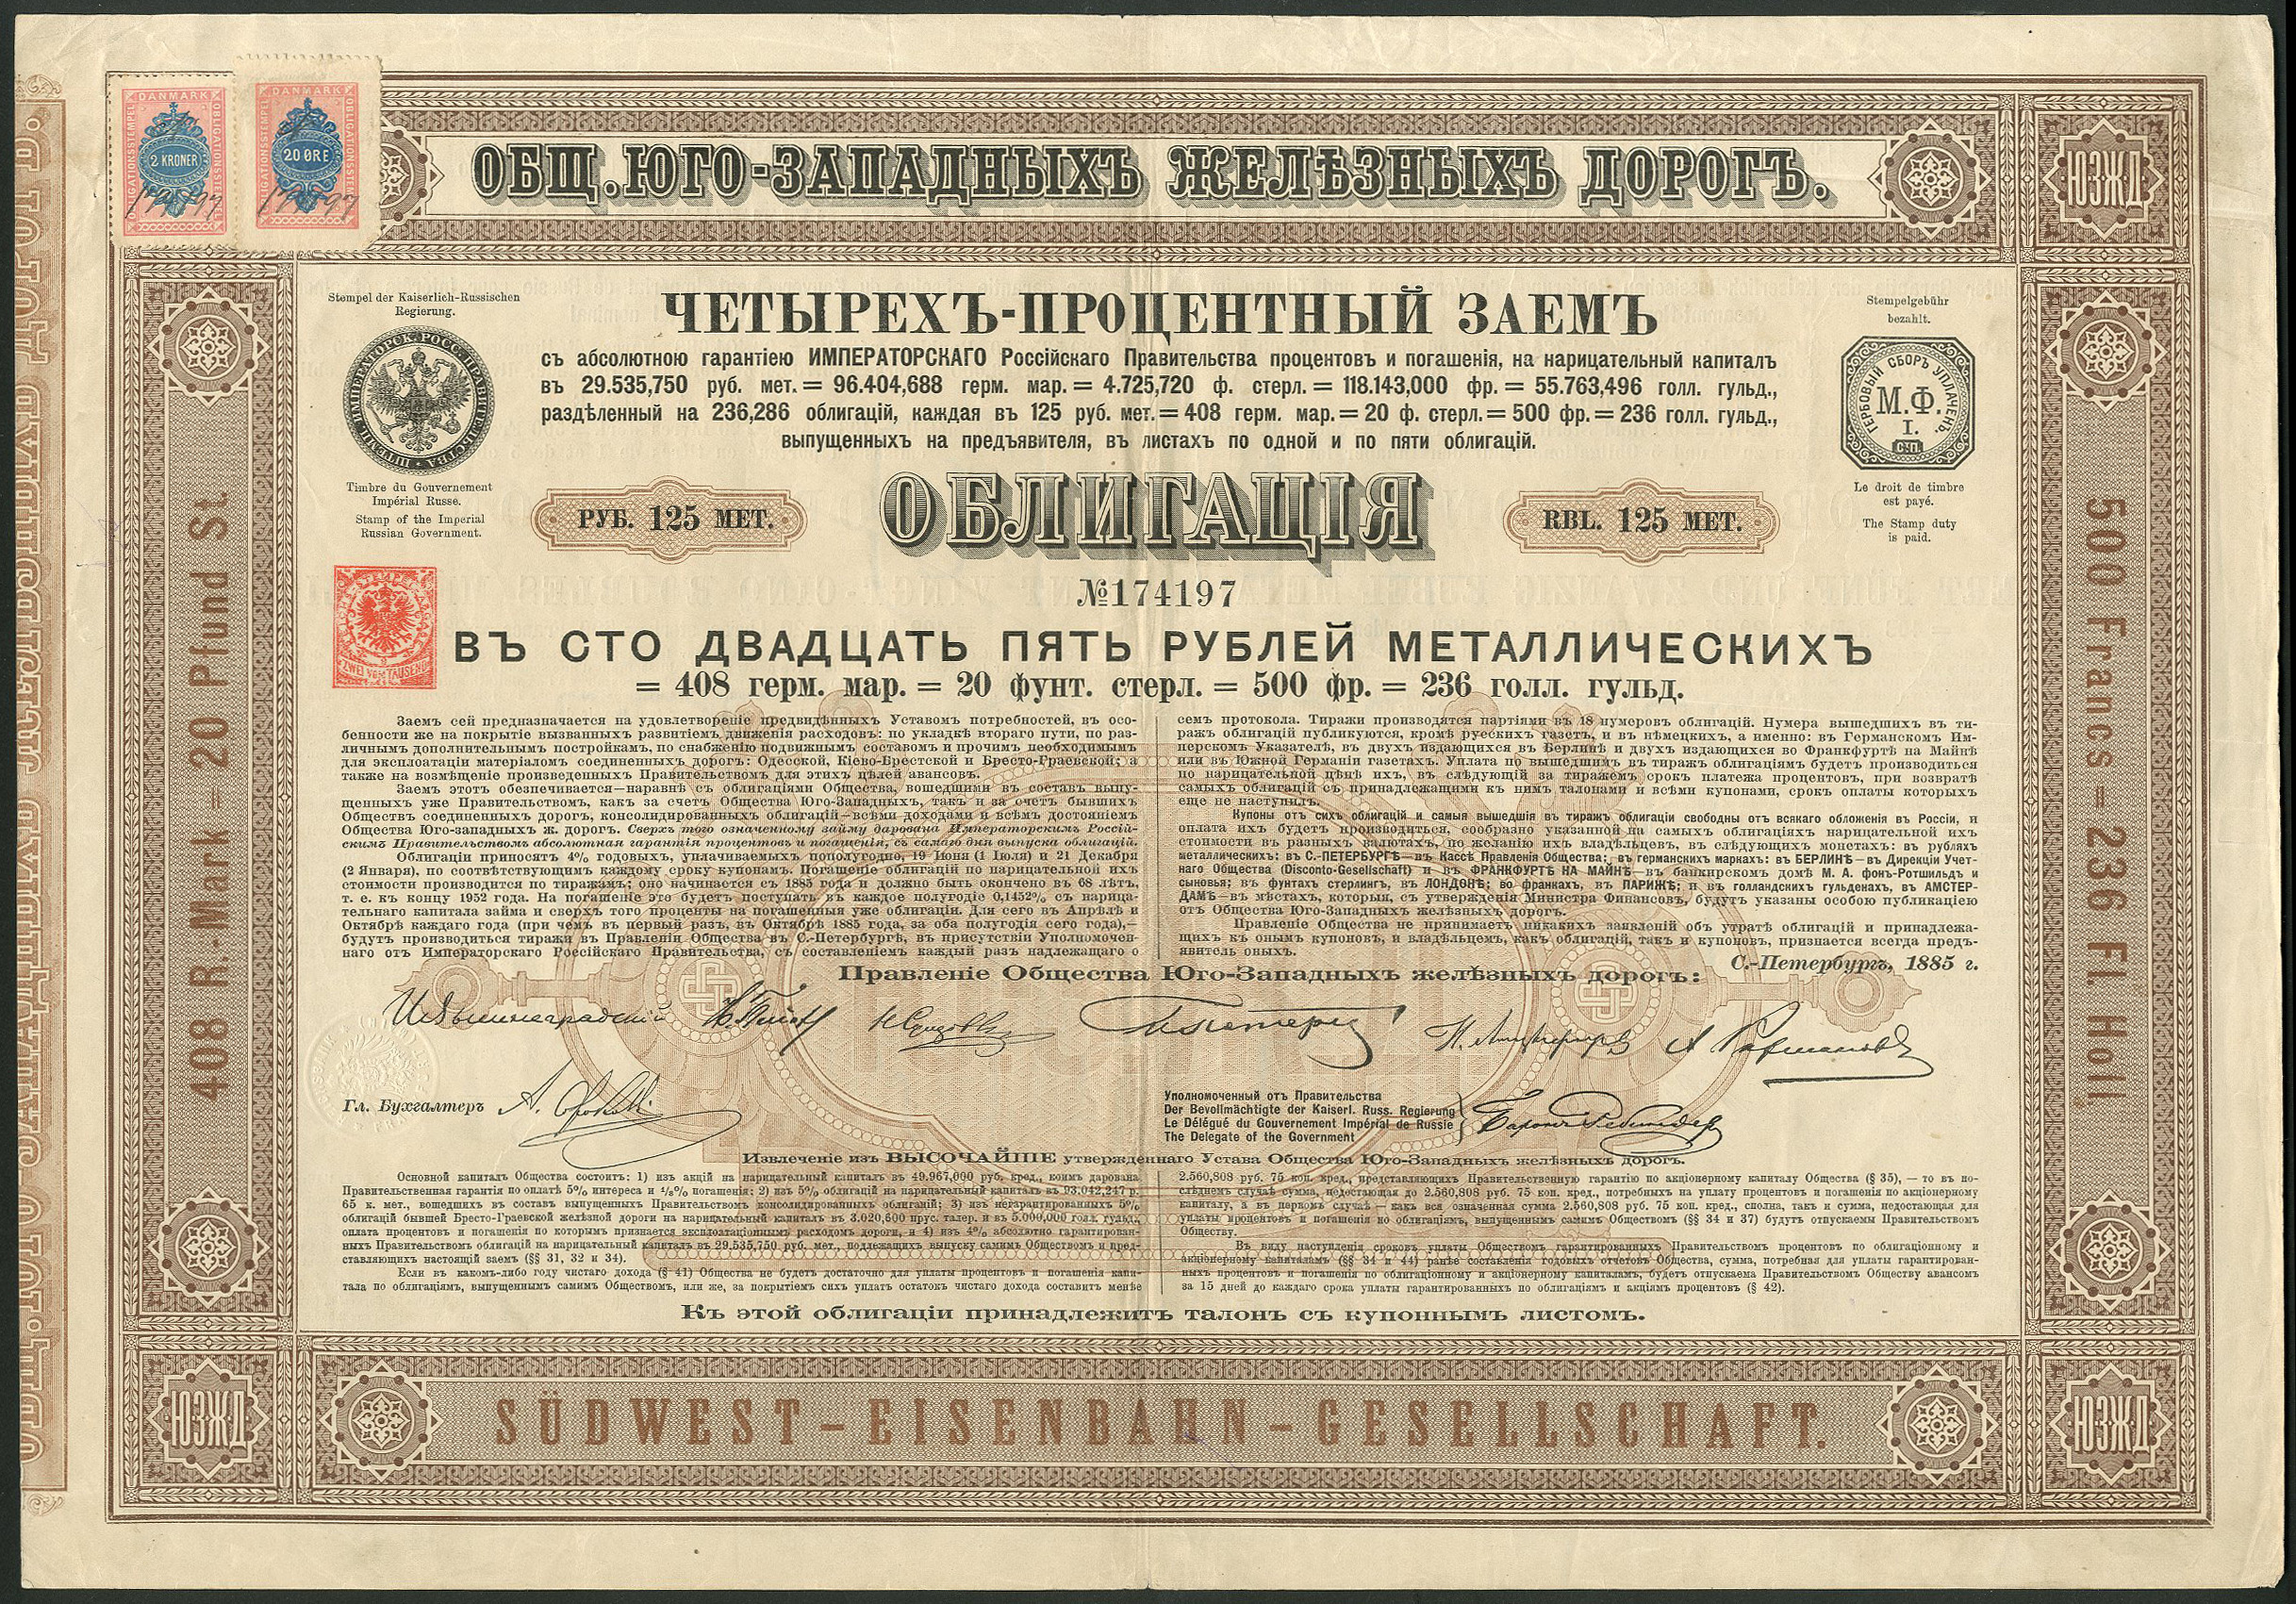 DANMARK
OBLIGATIONSSTEMPEL
2 KRONER
OBLIGATIONSSTEMPEL
DANMARK
OBLIGATIONSSTEMPEL
20 ØRE
OBLIGATIONSSTEMPEL
174197
174197
ОБЩ. ЮГО-ЗАПАДНЫХЪ ЖЕЛѢЗНЫХЪ ДОРОГЪ.
ЮЗЖД
Stempel der Kaiserlich-Russischen
Regierung.
ШТЕМП. ИМПЕРАТОРСК. РОСС. ПРАВИТЕЛЬСТВА
Timbre du Gouvernement
Impérial Russe.
Stamp of the Imperial
Russian Government.
ЧЕТЫРЕХЪ-ПРОЦЕНТНЫЙ ЗАЕМЪ
съ абсолютною гарантіею ИМПЕРАТОРСКАГО Россійскаго Правительства процентовъ и погашенія, на нарицательный капиталъ
въ 29.535,750 руб. мет. = 96.404,688 герм. мар. = 4.725,720 ф. стерл. = 118.143,000 фр. = 55.763,496 голл. гульд.,
раздѣленный на 236,286 облигацій, каждая въ 125 руб. мет. = 408 герм. мар. = 20 ф. стерл. = 500 фр. = 236 голл. гульд.,
выпущенныхъ на предъявителя, въ листахъ по одной и по пяти облигацій.
Stempelgebühr
bezahlt.
ГЕРБОВЫЙ СБОРЪ УПЛАЧЕНЪ.
М.Ф.
I.
С.П.
Le droit de timbre
est payé.
The Stamp duty
is paid.
РУБ. 125 МЕТ.
ОБЛИГАЦІЯ
RBL. 125 MET.
№174197
ZWEI VOM TAUSEND
ВЪ СТО ДВАДЦАТЬ ПЯТЬ РУБЛЕЙ МЕТАЛЛИЧЕСКИХЪ
= 408 герм. мар. = 20 фунт. стерл. = 500 фр. = 236 голл. гульд.
Заемъ сей предназначается на удовлетвореніе предвидѣнныхъ Уставомъ потребностей, въ осо-
бенности же на покрытіе вызванныхъ развитіемъ движенія расходовъ: по укладкѣ втораго пути, по раз-
личнымъ дополнительнымъ постройкамъ, по снабженію подвижнымъ составомъ и прочимъ необходимымъ
для эксплоатаціи матеріаломъ соединенныхъ дорогъ: Одесской, Кіево-Брестской и Бресто-Граевской; а
также на возмѣщеніе произведенныхъ Правительствомъ для этихъ цѣлей авансовъ.
Заемъ этотъ обезпечивается—наравнѣ съ облигаціями Общества, вошедшими въ составъ выпу-
щенныхъ уже Правительствомъ, какъ за счетъ Общества Юго-Западныхъ, такъ и за счетъ бывшихъ
Обществъ соединенныхъ дорогъ, консолидированныхъ облигацій—всѣми доходами и всѣмъ достояніемъ
Общества Юго-западныхъ ж. дорогъ. Сверхъ того означенному займу дарована Императорскимъ Россій-
скимъ Правительствомъ абсолютная гарантія процентовъ и погашенія, съ самаго дня выпуска облигацій.
Облигаціи приносятъ 4% годовыхъ, уплачиваемыхъ пополугодно, 19 Іюня (1 Іюля) и 21 Декабря
(2 Января), по соотвѣтствующимъ каждому сроку купонамъ. Погашеніе облигацій по нарицательной ихъ
стоимости производится по тиражамъ; оно начинается съ 1885 года и должно быть окончено въ 68 лѣтъ,
т. е. къ концу 1952 года. На погашеніе это будетъ поступать въ каждое полугодіе 0,1452% съ нарица-
тельнаго капитала займа и сверхъ того проценты на погашенныя уже облигаціи. Для сего въ Апрѣлѣ и
Октябрѣ каждаго года (при чемъ въ первый разъ, въ Октябрѣ 1885 года, за оба полугодія сего года),—
будутъ производиться тиражи въ Правленіи Общества въ С.-Петербургѣ, въ присутствіи Уполномочен-
наго отъ Императорскаго Россійскаго Правительства, съ составленіемъ каждый разъ надлежащаго о
семъ протокола. Тиражи производятся партіями въ 18 нумеровъ облигацій. Нумера вышедшихъ въ ти-
ражъ облигацій публикуются, кромѣ русскихъ газетъ, и въ нѣмецкихъ, а именно: въ Германскомъ Им-
перскомъ Указателѣ, въ двухъ издающихся въ Берлинѣ и двухъ издающихся во Франкфуртѣ на Майнѣ
или въ Южной Германіи газетахъ. Уплата по вышедшимъ въ тиражъ облигаціямъ будетъ производиться
по нарицательной цѣнѣ ихъ, въ слѣдующій за тиражемъ срокъ платежа процентовъ, при возвратѣ
самыхъ облигацій съ принадлежащими къ нимъ талонами и всѣми купонами, срокъ оплаты которыхъ
еще не наступилъ.
Купоны отъ сихъ облигацій и самыя вышедшія въ тиражъ облигаціи свободны отъ всякаго обложенія въ Россіи, и
оплата ихъ будетъ производиться, сообразно указанной на самыхъ облигаціяхъ нарицательной ихъ
стоимости въ разныхъ валютахъ, по желанію ихъ владѣльцевъ, въ слѣдующихъ монетахъ: въ рубляхъ
металлическихъ: въ С.-ПЕТЕРБУРГѢ—въ Кассѣ Правленія Общества; въ германскихъ маркахъ: въ БЕРЛИНѢ—въ Дирекціи Учет-
наго Общества (Disconto-Gesellschaft) и въ ФРАНКФУРТѢ НА МАЙНѢ—въ банкирскомъ домѣ М. А. фонъ-Ротшильдъ и
сыновья; въ фунтахъ стерлингъ, въ ЛОНДОНѢ; во франкахъ, въ ПАРИЖѢ; и въ голландскихъ гульденахъ, въ АМСТЕР-
ДАМѢ—въ мѣстахъ, которыя, съ утвержденія Министра Финансовъ, будутъ указаны особою публикаціею
отъ Общества Юго-Западныхъ желѣзныхъ дорогъ.
Правленіе Общества не принимаетъ никакихъ заявленій объ утратѣ облигацій и принадлежа-
щихъ къ онымъ купоновъ, и владѣльцемъ, какъ облигацій, такъ и купоновъ, признается всегда предъ-
явитель оныхъ.
С.-Петербургъ, 1885 г.
Правленіе Общества Юго-Западныхъ желѣзныхъ дорогъ:
Гл. Бухгалтеръ
Уполномоченный отъ Правительства
Der Bevollmächtigte der Kaiserl. Russ. Regierung
Le Délégué du Gouvernement Impérial de Russie
The Delegate of the Government
Извлеченіе изъ ВЫСОЧАЙШЕ утвержденнаго Устава Общества Юго-Западныхъ желѣзныхъ дорогъ.
Основной капиталъ Общества состоитъ: 1) изъ акцій на нарицательный капиталъ въ 49.967,000 руб. кред., коимъ дарована
Правительственная гарантія по оплатѣ 5% интереса и ½% погашенія; 2) изъ 5% облигацій на нарицательный капиталъ въ 93.042,247 р.
65 к. мет., вошедшихъ въ составъ выпущенныхъ Правительствомъ консолидированныхъ облигацій; 3) изъ негарантированныхъ 5%
облигацій бывшей Бресто-Граевской желѣзной дороги на нарицательный капиталъ въ 3.020,600 прус. талер. и въ 5.000,000 голл. гульд.,
оплата процентовъ и погашенія по которымъ признается эксплоатаціоннымъ расходомъ дороги, и 4) изъ 4% абсолютно гарантирован-
ныхъ Правительствомъ облигацій на нарицательный капиталъ въ 29.535,750 руб. мет., подлежащихъ выпуску самимъ Обществомъ и пред-
ставляющихъ настоящій заемъ (§§ 31, 32 и 34).
Если въ какомъ-либо году чистаго дохода (§ 41) Общества не будетъ достаточно для уплаты процентовъ и погашенія капи-
тала по облигаціямъ, выпущеннымъ самимъ Обществомъ, или же, за покрытіемъ сихъ уплатъ остатокъ чистаго дохода составитъ менѣе
2.560,808 руб. 75 коп. кред., представляющихъ Правительственную гарантію по акціонерному капиталу Общества (§ 35), — то въ по-
слѣднемъ случаѣ сумма, недостающая до 2.560,808 руб. 75 коп. кред., потребныхъ на уплату процентовъ и погашенія по акціонерному
капиталу, а въ первомъ случаѣ — какъ вся означенная сумма 2.560,808 руб. 75 коп. кред., сполна, такъ и сумма, недостающая для
уплаты процентовъ и погашенія по облигаціямъ, выпущеннымъ самимъ Обществомъ (§§ 34 и 37) будутъ отпускаемы Правительствомъ
Обществу.
Въ виду наступленія сроковъ уплаты Обществомъ гарантированныхъ Правительствомъ процентовъ по облигаціонному и
акціонерному капиталамъ (§§ 34 и 44) ранѣе составленія годовыхъ отчетовъ Общества, сумма, потребная для уплаты гарантирован-
ныхъ процентовъ и погашенія по облигаціонному и акціонерному капиталамъ, будетъ отпускаема Правительствомъ Обществу авансомъ
за 15 дней до каждаго срока уплаты гарантированныхъ по облигаціямъ и акціямъ процентовъ (§ 42).
Къ этой облигаціи принадлежитъ талонъ съ купоннымъ листомъ.
408 R.-Mark = 20 Pfund St.
500 Francs = 236 Fl. Holl.
ЮЗЖД
SÜDWEST-EISENBAHN-GESELLSCHAFT.
ЮЗЖД